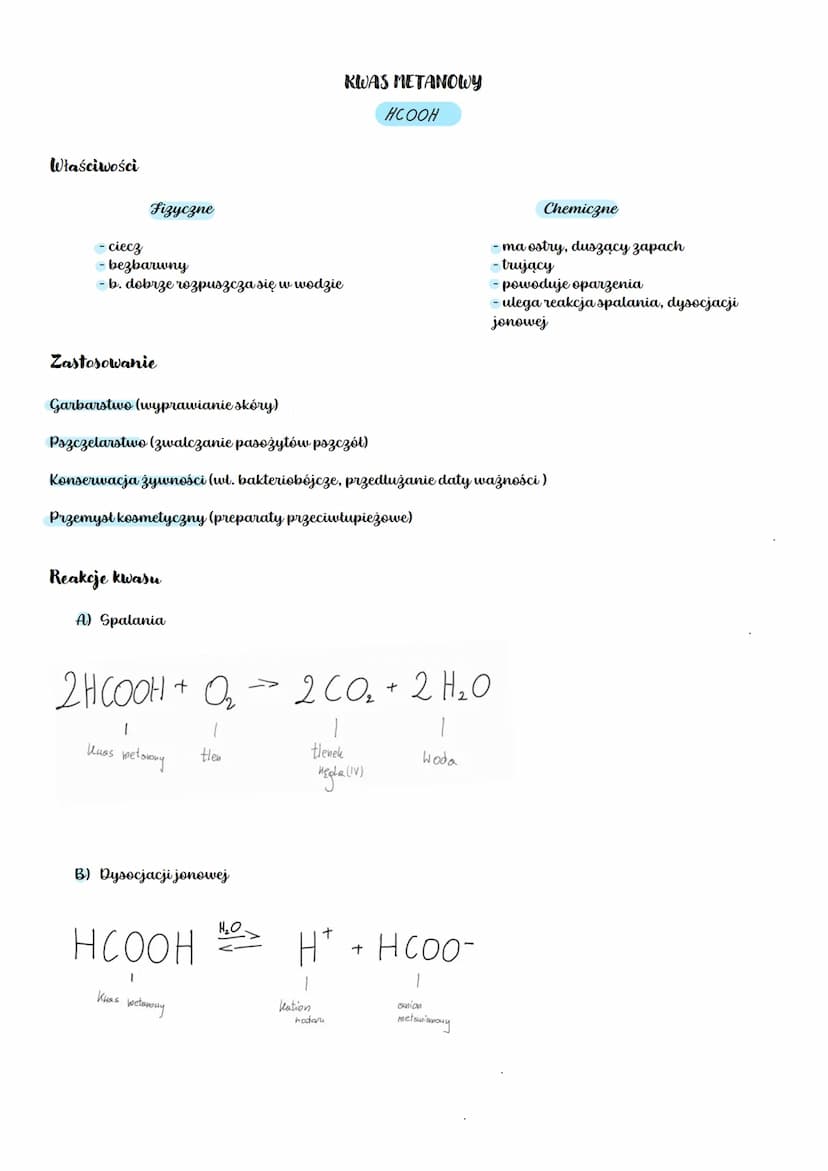 KWAS METANOWY
HCOOH
Właściwości
Fizyczne
- ciecz
- bezbarwny
- b. dobrze rozpuszcza się w wodzie
Chemiczne
- ma ostry, duszący zapach
- trujący
- powoduje oparzenia
- ulega reakcja spalania, dysocjacji
jonowej
Zastosowanie
Garbarstwo (wyprawianie skóry)
Pszczelarstwo (zwalczanie pasożytów pszczół)
Konserwacja żywności (wł. bakteriobójcze, przedłużanie daty ważności )
Przemysł kosmetyczny (preparaty przeciwłupieżowe)
Reakcje kwasu
A) Spalania
2HCOOH + O₂ -> 2CO₂ + 2H₂O
kwas metanowy tlen tlenek węgla(IV) woda
B) Dysocjacji jonowej
H₂O
HCOOH ⇌ H⁺ + HCOO⁻
kwas metanowy kation wodoru anion